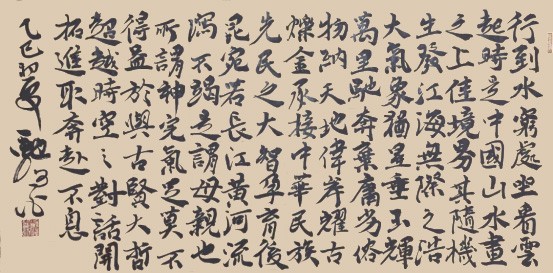 行到水窮處坐看雲
起時是中國山水畫
之上佳境易其隨機
生發江海無際之浩
大氣象猶星垂玉輝
萬里馳奔棄庸劣俗
物納天地偉岸耀古
爍金承接中華民族
先民之大智孕育後
昆宛若長江黃河流
瀉不竭是謂母親也
所謂神完氣足莫不
得益於與古賢大哲
超越時空之對話開
拓進取奔赴不息
乙巳初夏